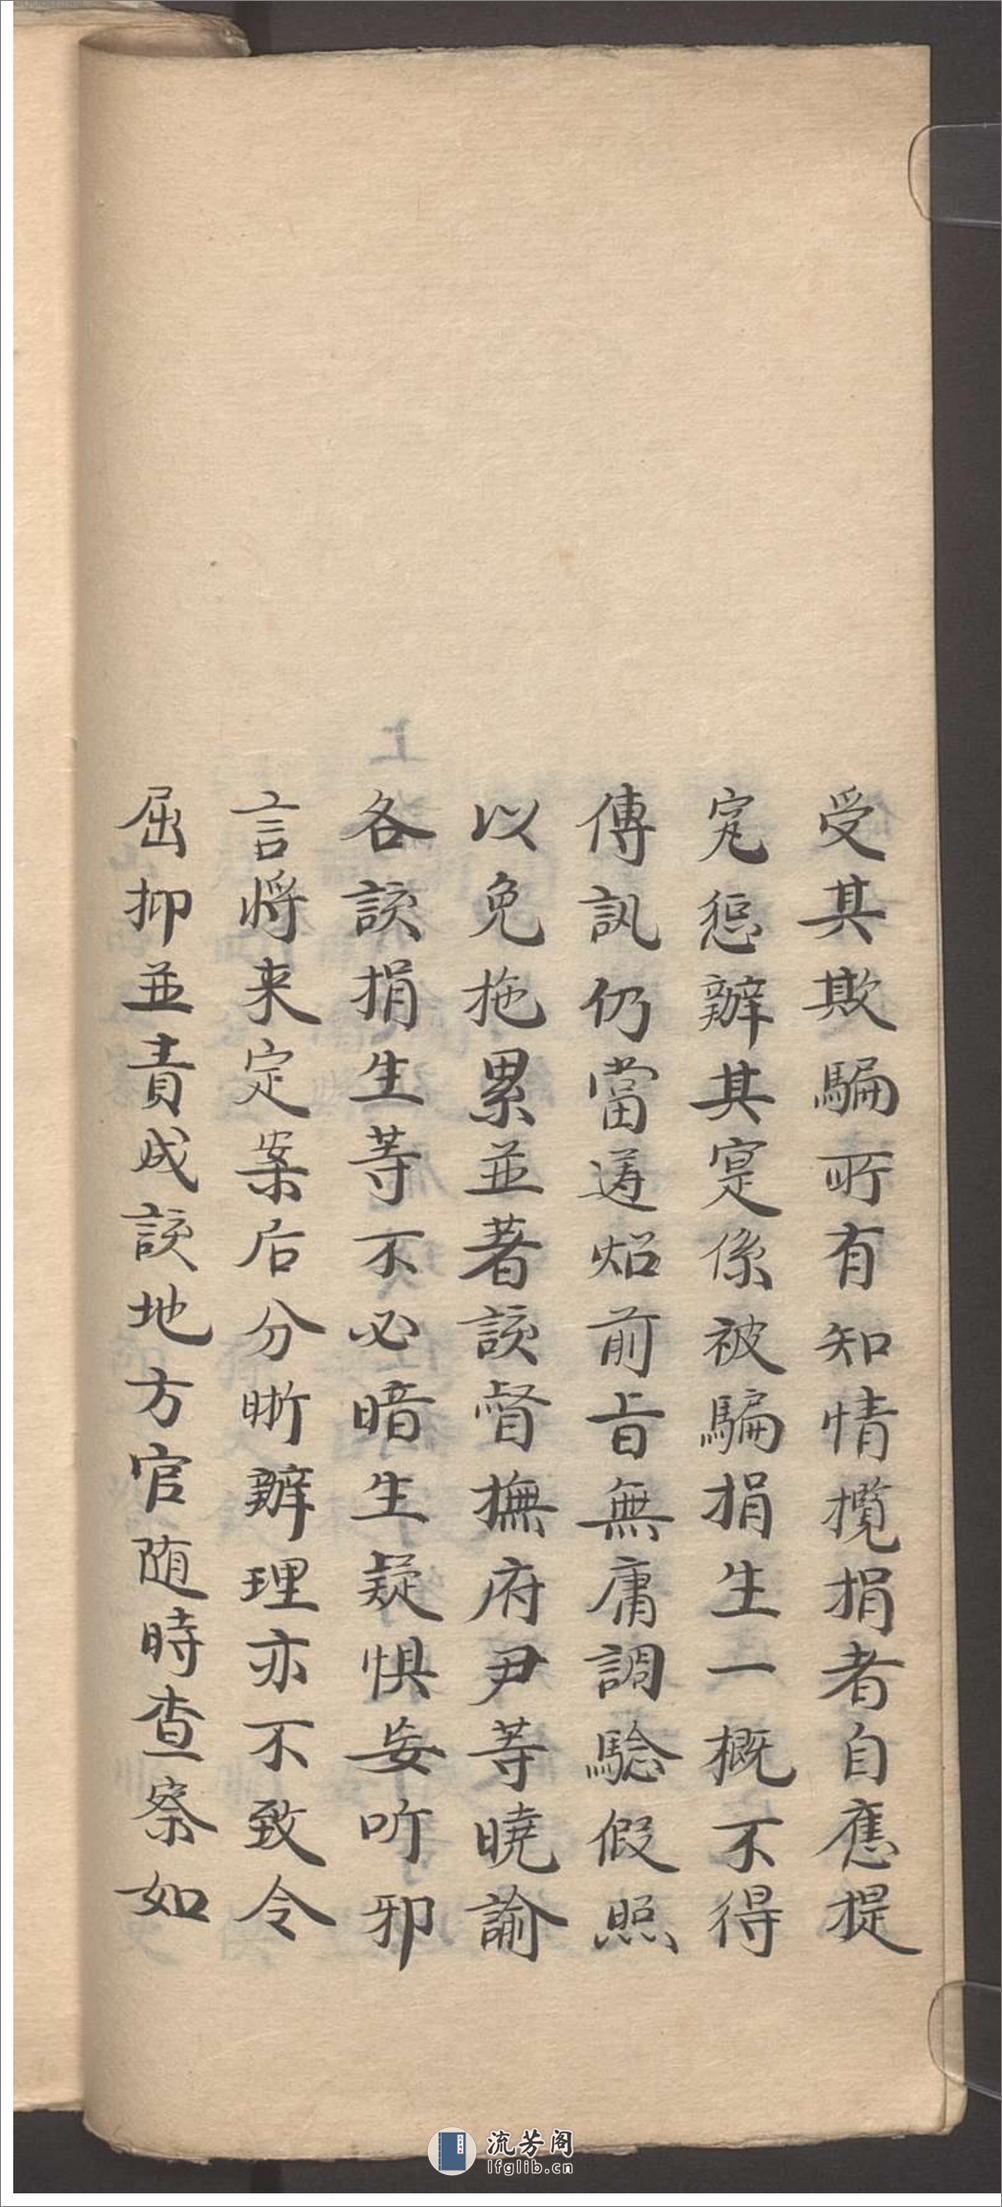 受其欺騙所有知情攬捐者自應提
究懲辦其寔係被騙捐生一概不得
傳訊仍當遵照前旨無庸調驗假照
以免拖累並著該督撫府尹等曉諭
各該捐生等不必暗生疑惧妄听邪
言將来定案后分晰辦理亦不致令
屈抑並責成該地方官随時查察如
流芳阁
lfglib.cn